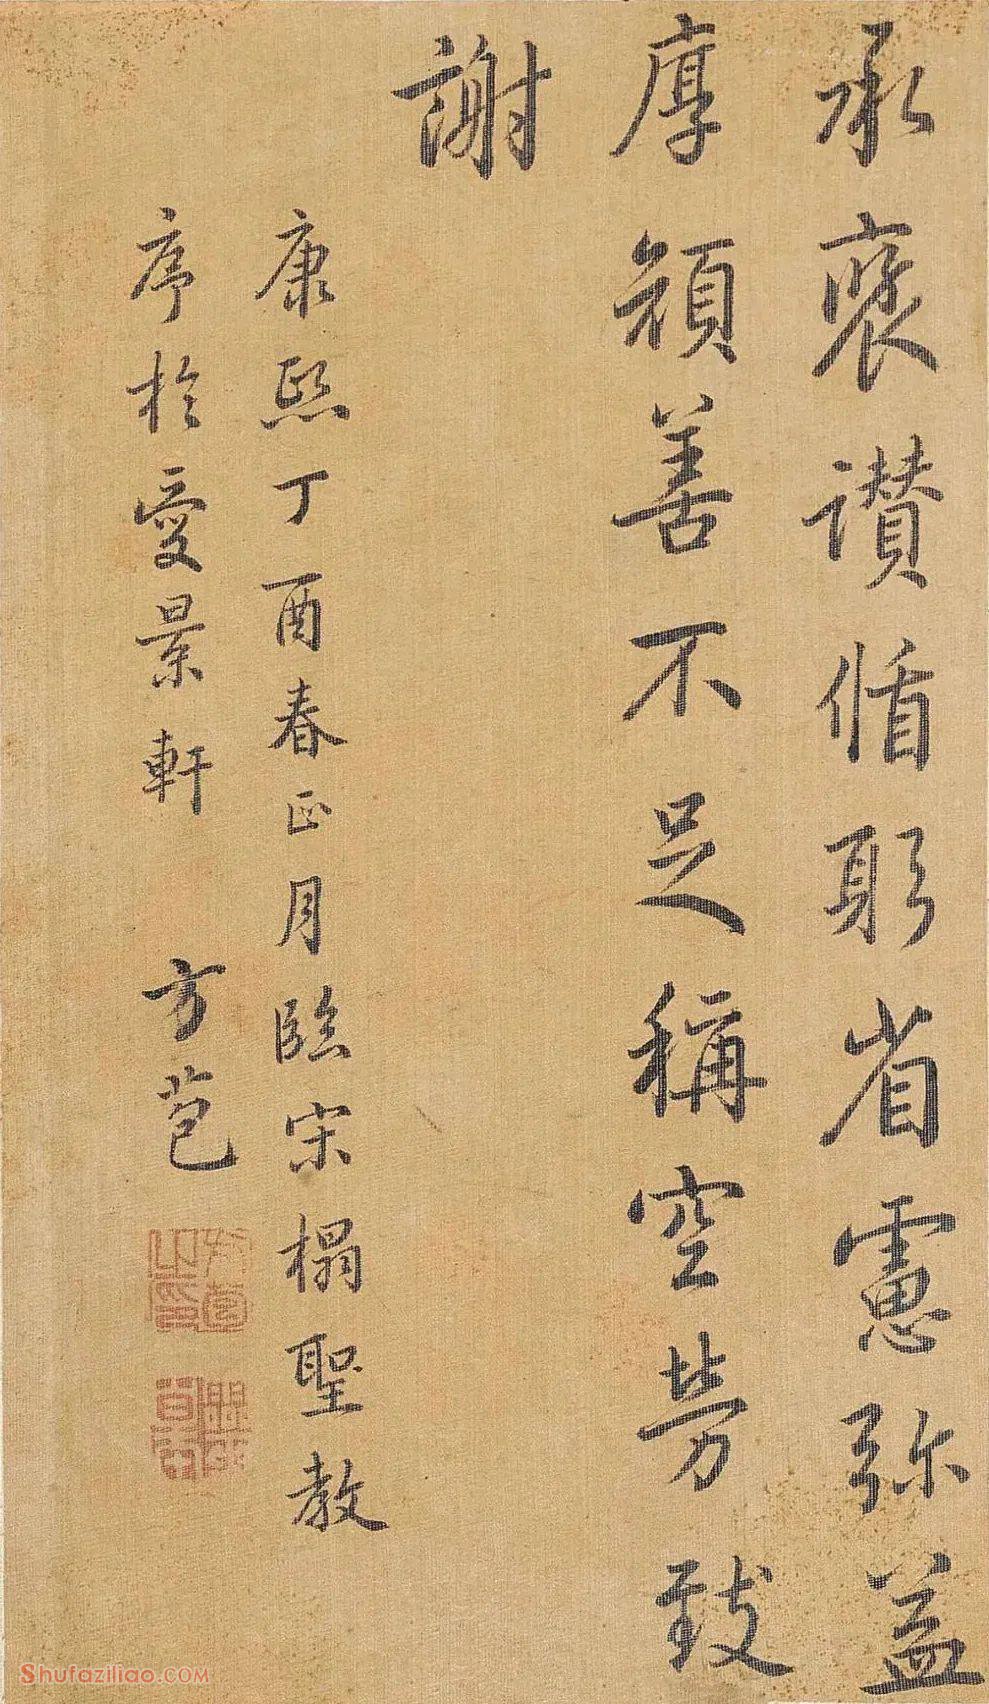 承褒讃循躬省慮弥益
厚顔善不足稱空勞致
謝
康熙丁酉春正月臨宋榻聖教
序於愛景軒 方苞
Shufaziliao.COM